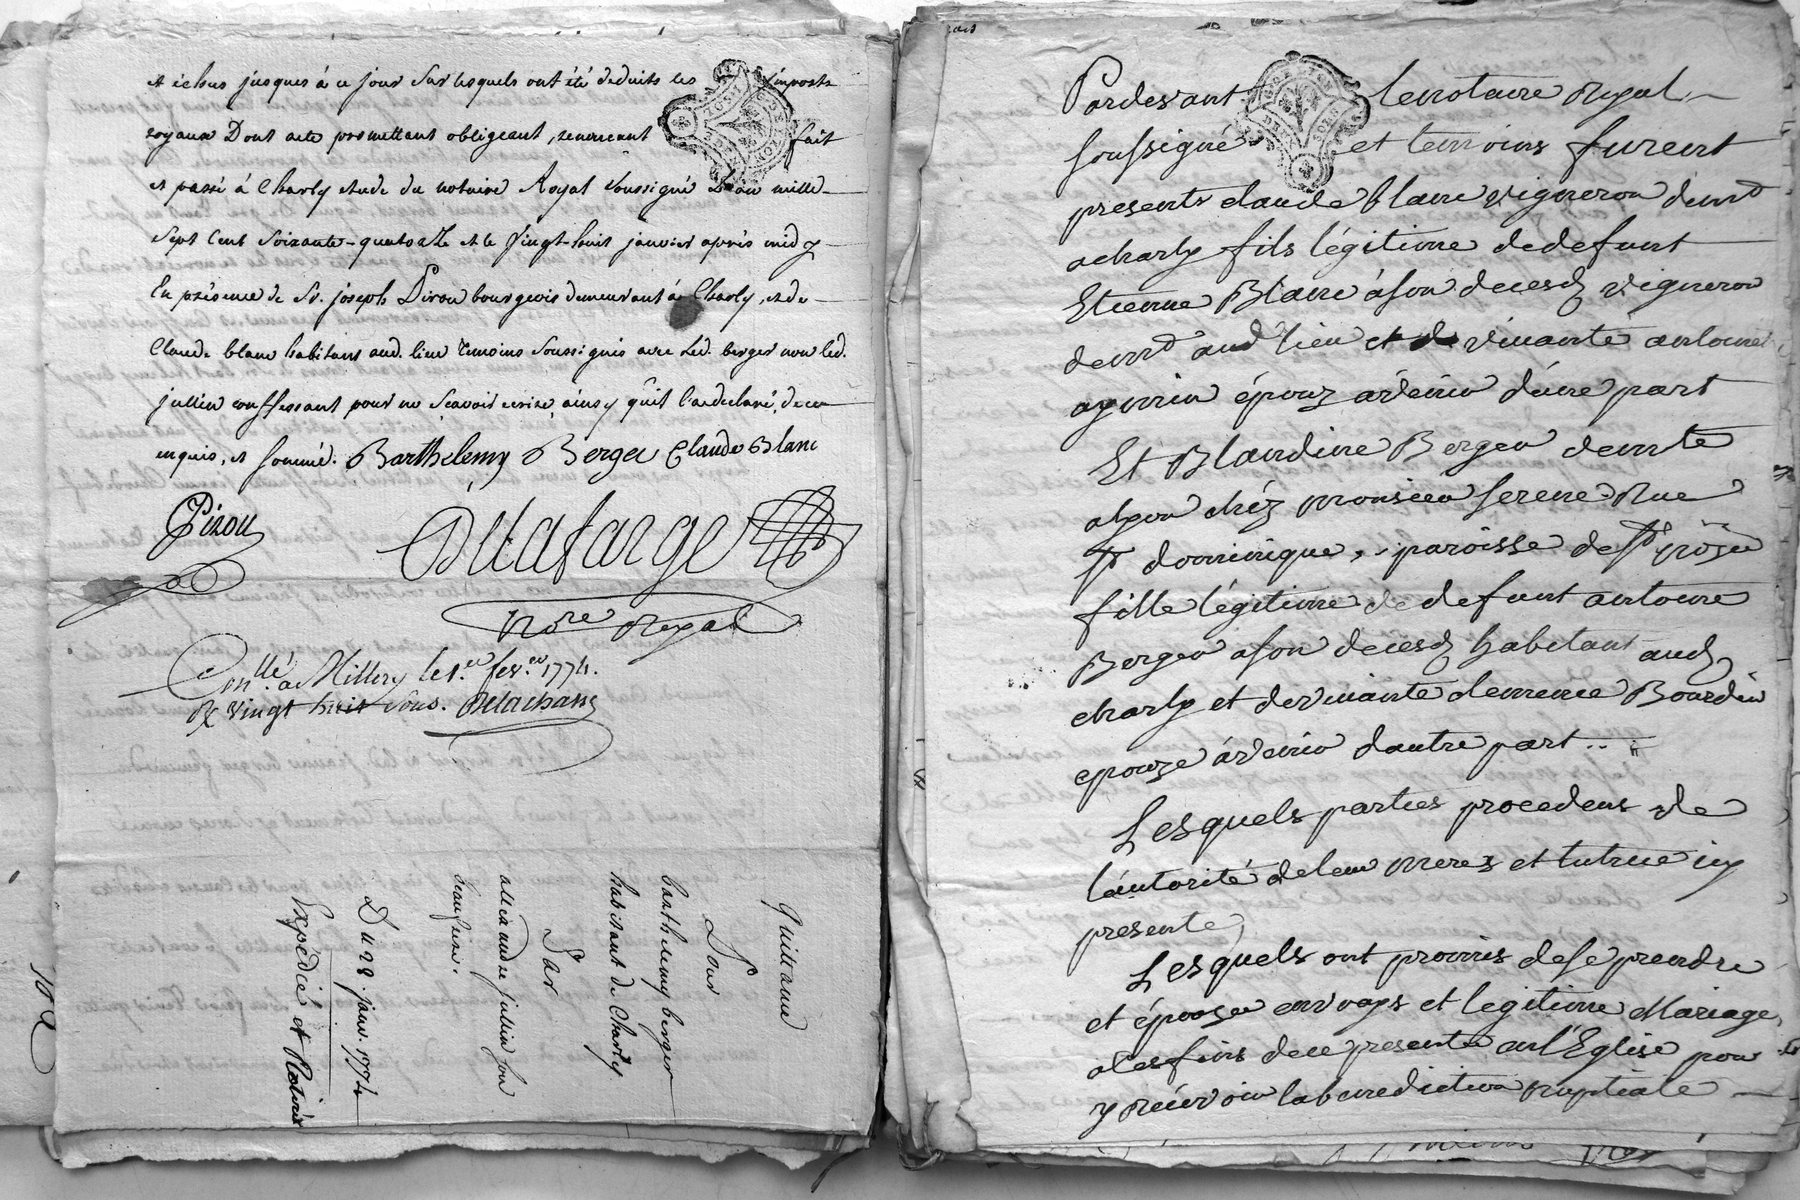 et échus jusques à ce jour sur lesquels ont été déduits les imposts
royaux Dont acte promettant obligeant, renonceant fait
et passé à Charly etude du notaire Royal soussigné L'an mille
sept Cent soixante-quatorze et le vingt-huit janvier après midy
En présence de Sr. joseph Pizou bourgeois demeurant à Charly, et de
Claude blanc habitant aud. lieu temoins soussignés avec Led. berger non led.
jullin confessant pour ne scavoir écrire ainsy qu'il l'a declaré, de ce
enquis, et sommé. Barthelemy Berger Claude Blanc
Pizou
Delafarge
Nore Royal
Conllé. a Millery le 1.er fev.er 1774.
R vingt huit sous. Delachass
Quittance
Pour
barthelemy berger
habitant de Charly
Par
allexandre jullin son
beaufrere.
Du 28. janv. 1774
Expédié et
Pardevant le notaire Royal
soussigné et temoins furent
presents claude blanc vigneron demt
a charly fils légitime de defunt
Etienne Blanc à son deces vigneron
demt aud lieu et de vivante antoinet
aymin épouz à venir d'une part
Et Blandine Berger demte
a lyon chéz monsieur serene Rue
st dominique, paroisse de
fille légitime de defunt antoine
Berger a son deces habitant aud
charly et de vivante clemence Bourdin
epouze à venir d'autre part..
Lesquels parties procedens de
l'autorité de leur meres et tutrice icy
presente
Lesquels ont promis de se prendre
et épouser en vray et legitime Mariage
a les fins de ce presenter en l'Eglise pour
y récevoir la benediction nuptiale